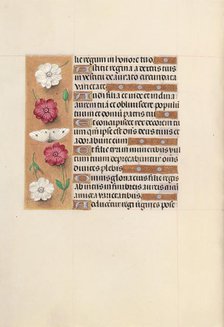 lie regum in honore tuo
Astitit regina a dextris tuis
in vestitu deaurato circundata
varietate
Audi filia et vide et inclina
aurem tuam et obliviscere populum
tuum et domum patris tui
Et concupiscet rex decorem tuum
quoniam ipse est dominus deus tuus
et adorabunt eum
Et filie tiri in muneribus vul
tum tuum deprecabuntur omnes
divites plebis
Omnis gloria eius filie regis
ab intus in fimbriis aureis circum
amicta varietatibus
Adducentur regi virgines post